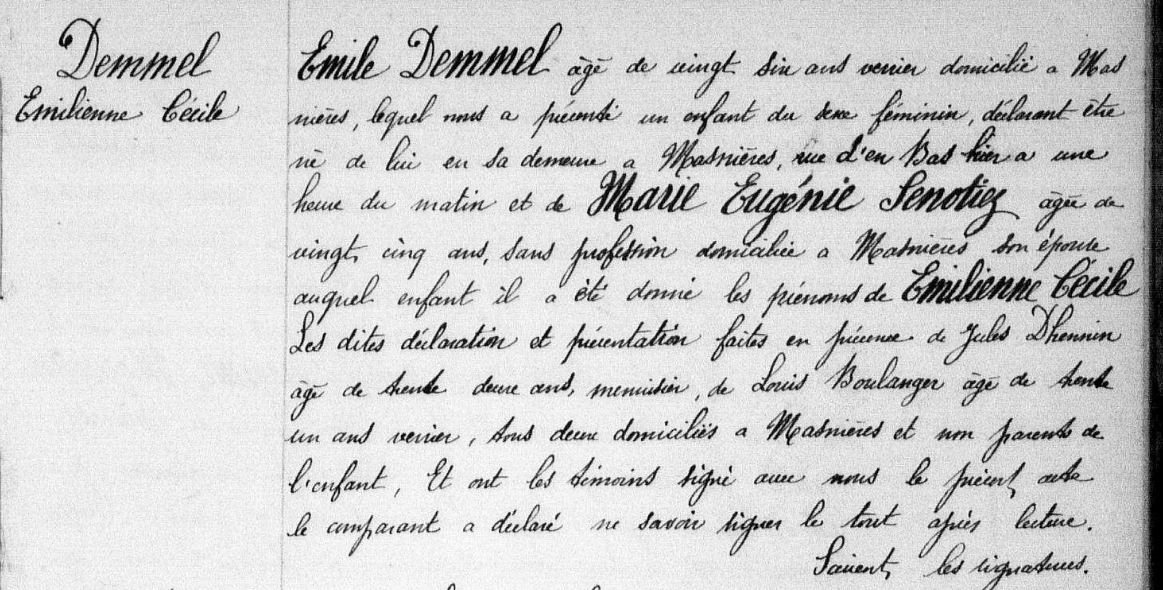 Demmel
Emilienne Cécile
Emile Demmel âgé de vingt six ans verrier domicilié a Mas
nières, lequel nous a présenté un enfant du sexe féminin, déclarant être
né de lui en sa demeure a Masnières, rue d'en Bas hier a une
heure du matin et de Marie Eugénie Senotiez âgée de
vingt cinq ans, sans profession domiciliée a Masnières son épouse
auquel enfant il a été donné les prénoms de Emilienne Cécile
Les dites déclaration et présentation faites en présence de Jules Dhennin
âgé de trente deux ans, menuisier, de Louis Boulanger âgé de trente
un ans verrier, tous deux domiciliés a Masnières et non parents de
l'enfant, Et ont les témoins signé avec nous le présent acte
le comparant a déclaré ne savoir signer le tout après lecture.
Suivent les signatures.